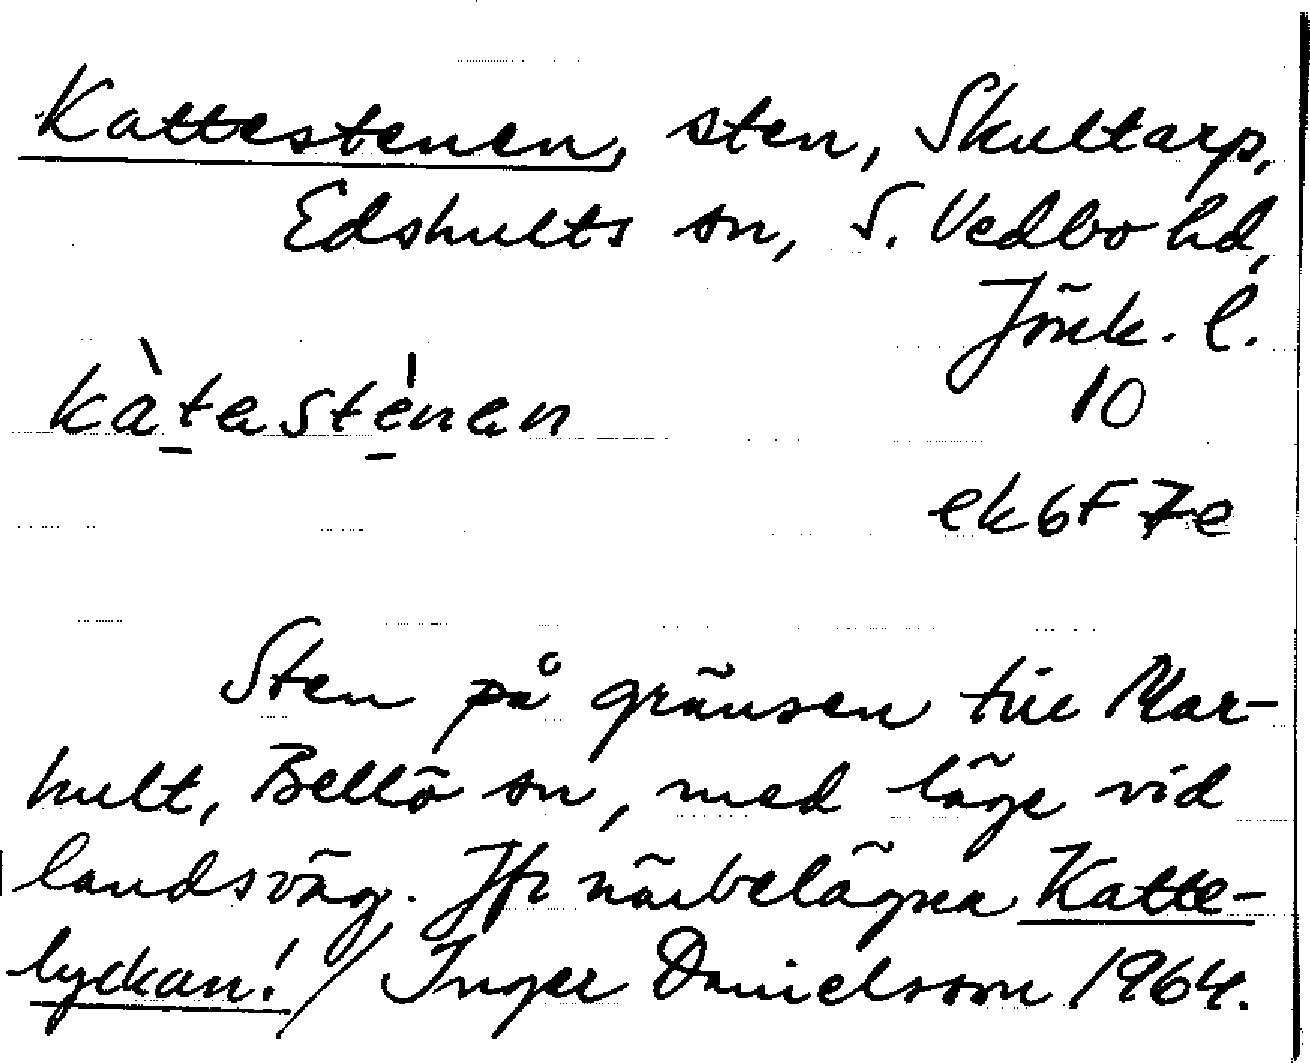 Kattestenen, sten, Skultarp,
Edshults sn, S. Vedbo hd,
Jönk. l.
kàtastènan
10
ek 6F 7e
Sten på gränsen till Mar-
hult, Bellö sn, med läge vid
landsväg. Jfr närbelägna Katte-
lyckan! / Inger Danielsson 1964.